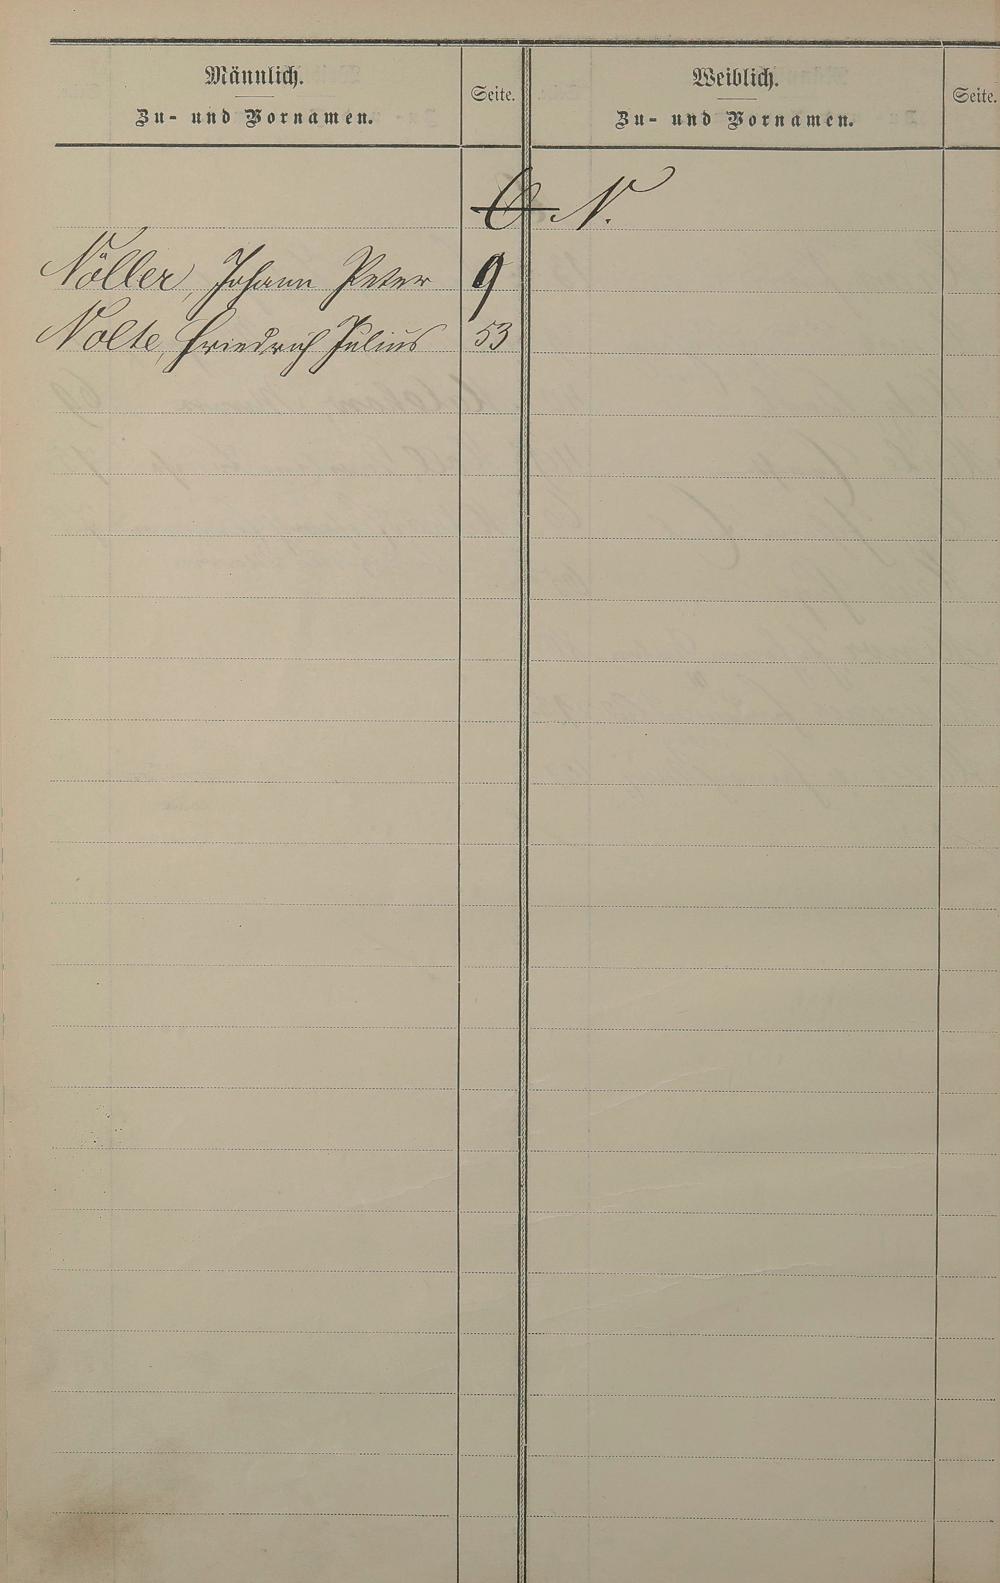 Männlich.
Zu- und Vornamen.
Seite.
Weiblich.
Zu- und Vornamen.
Seite.
O N.
Nöller, Johann Peter 9
Nolte, Friedrich Julius 53